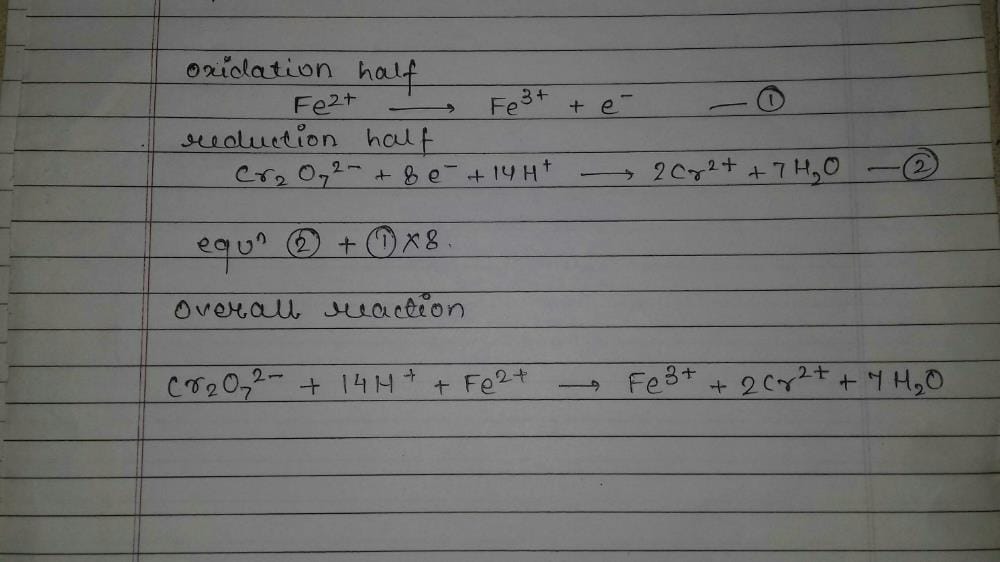 oxidation half
Fe²⁺ ⟶ Fe³⁺ + e⁻ — ①
reduction half
Cr₂O₇²⁻ + 8e⁻ + 14H⁺ ⟶ 2Cr²⁺ + 7H₂O — ②
equⁿ ② + ① × 8.
overall reaction
Cr₂O₇²⁻ + 14H⁺ + Fe²⁺ ⟶ Fe³⁺ + 2Cr²⁺ + 7H₂O